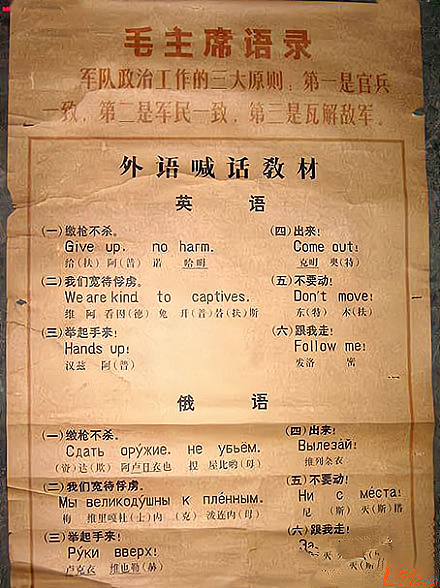 毛主席语录
军队政治工作的三大原则：第一是官兵
一致，第二是军民一致，第三是瓦解敌军。
外语喊话教材
英 语
(一)缴枪不杀。
Give up, no harm.
给(扶) 阿(普) 诺 哈姆
(二)我们宽待俘虏。
We are kind to captives.
维 阿 看因(德) 兔 开(普)替(扶)斯
(三)举起手来!
Hands up!
汉兹 阿(普)
(四)出来!
Come out!
克姆 奥(特)
(五)不要动!
Don't move!
东(特) 木(扶)
(六)跟我走!
Follow me!
发洛 密
俄 语
(一)缴枪不杀。
Сдать ору́жие, не убьём.
(资)达(欺) 阿卢日衣也 捏 屋比哟(母)
(二)我们宽待俘虏。
Мы великоду́шны к пле́нным.
梅 维里嘎杜(士)内 (克) 泼连内(母)
(三)举起手来!
Ру́ки вверх!
卢克衣 维也勒(赫)
(四)出来!
Вылеза́й!
维列杂衣
(五)不要动!
Ни с ме́ста!
尼 (斯) 灭(斯)搭
(六)跟我走!
За
灭